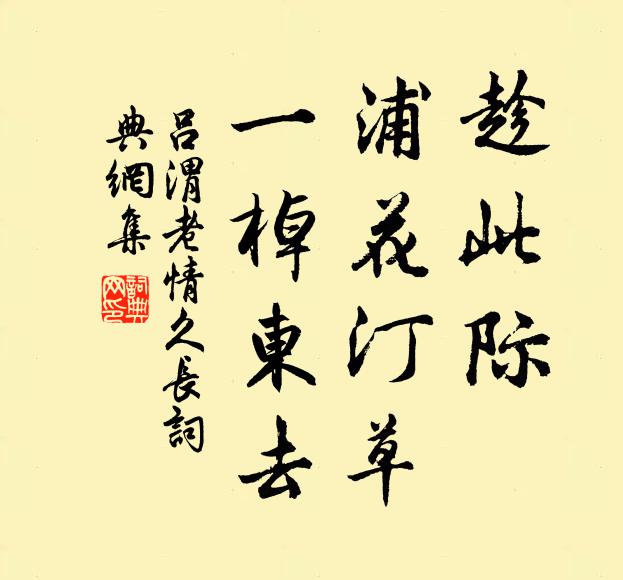 趁此际
浦花汀草
一棹東去
吕渭老情久長詞
典網集
詞典
网印